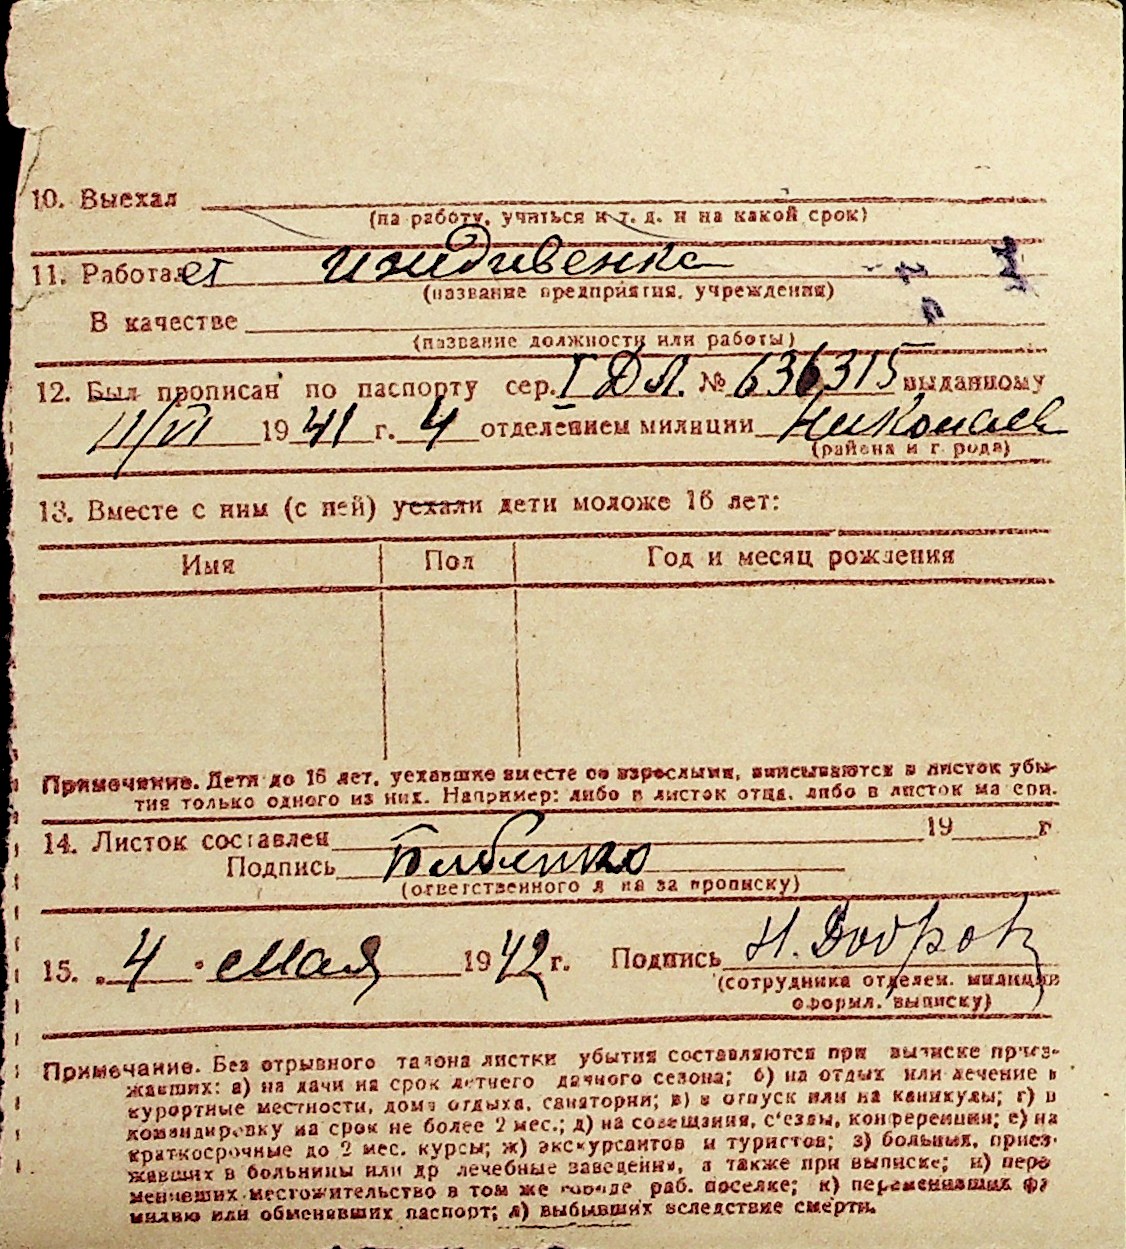 10. Выехал
(на работу, учиться и т. д. и на какой срок)
11. Работает иждивенка
(название предприятия, учреждения)
В качестве
(название должности или работы)
12. Был прописан по паспорту сер. I ДЛ. № 636315 выданному
11/VI 1941 г. 4 отделением милиции Николаев
(района и города)
13. Вместе с ним (с ней) уехали дети моложе 16 лет:
Имя Пол Год и месяц рождения
Примечание. Дети до 16 лет, уехавшие вместе со взрослыми, вписываются в листок убы-
тия только одного из них. Например: либо в листок отца, либо в листок матери.
14. Листок составлен 19 г
Подпись
(ответственного лица за прописку)
15. „4" мая 1942 г. Подпись Н. Добров
(сотрудника отделен. милиции
оформл. выписку)
Примечание. Без отрывного талона листки убытия составляются при выписке приез-
жавших: а) на дачи на срок летнего дачного сезона; б) на отдых или лечение в
курортные местности, дома отдыха, санатории; в) в отпуск или на каникулы; г) в
командировку на срок не более 2 мес.; д) на совещания, с'езды, конференции; е) на
краткосрочные до 2 мес. курсы; ж) экскурсантов и туристов; з) больных, приез-
жавших в больницы или др лечебные заведения, а также при выписке; и) пере
менивших местожительство в том же городе раб. поселке; к) переменивших фа
милию или обменявших паспорт; л) выбывших вследствие смерти.